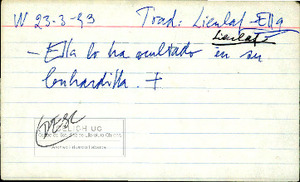 W 23-3-93 Trad: Lienlaf - Ella
Lienlaf
- Ella lo ha ocultado en su
lonhardilla. F
DESC